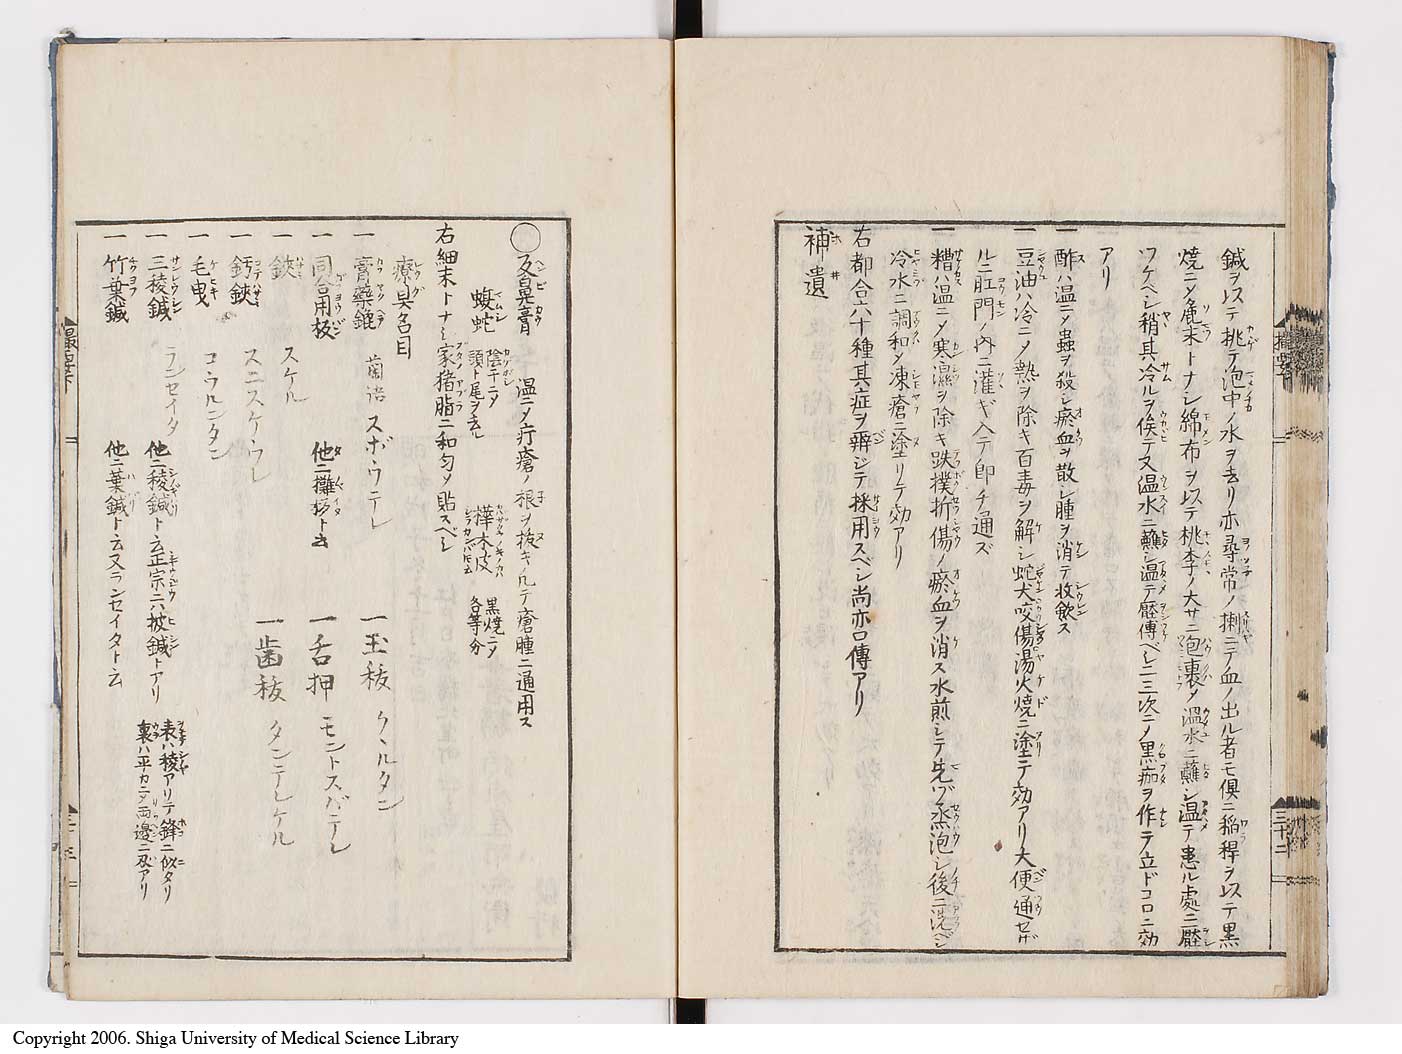 鍼ヲ以テ挑テ泡中ノ水ヲ去リ亦尋常ノ搠ニテ血ノ出ル者モ俱ニ稲稈ヲ以テ黒
焼ニメ麁末トナシ綿布ヲ以テ桃李ノ大サニ包裹メ温水ニ蘸シ温テ患ル處ニ壓
ツケベシ稍其冷ルヲ俟テ又温水ニ蘸シ温テ壓傳ベシ二三次ニメ黒痂ヲ作テ立ドコロニ効
アリ
一酢ハ温ニメ蟲ヲ殺シ瘀血ヲ散シ腫ヲ消テ收歛ス
一豆油ハ冷ニメ熱ヲ除キ百毒ヲ解シ蛇犬咬傷湯火焼ニ塗テ効アリ大便通セザ
ルニ肛門ノ内ニ灌ギ入テ即チ通ズ
一糟ハ温ニメ寒濕ヲ除キ跌撲折傷ノ瘀血ヲ消ス水煎シテ先ヅ蒸泡シ後ニ洗ベシ
冷水ニ調和メ凍瘡ニ塗リテ効アリ
右都合六十種其症ヲ辨ジテ採用スベシ尚亦口傳アリ
補遺
〇反鼻膏 温ニメ疔瘡ノ根ヲ抜キ凡テ瘡腫ニ通用ス
蝮蛇 陰干ニメ頭ト尾ヲ去ル 樺木皮 黒焼ニメ各等分
右細末トナシ家猪脂ニ和匀メ貼スベシ
療具名目
一膏藥錐 蘭語スボウテレ
一同合用板 他ニ攤板ト云
一鋏 スケル
一鈣鋏 スニスケウレ
一毛曳 コウルンタン
一三稜鍼 ランセイタ 他ニ稜鍼ト云正宗ニ六披鍼トアリ 表ハ稜アリテ鋒ニ似タリ裏ハ平カニメ両邊ニ刄アリ
一竹葉鍼 他ニ葉鍼ト云又ランセイタト云
一玉秡 クンルタン
一舌押 モントスバテレ
一歯秡 タンテレケル
三十二
Copyright 2006. Shiga University of Medical Science Library